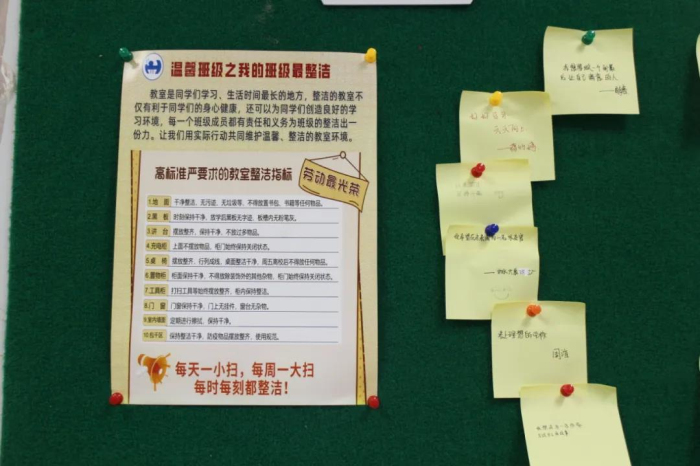 温馨班级之我的班级最整洁
教室是同学们学习、生活时间最长的地方，整洁的教室不
仅有利于同学们的身心健康，还可以为同学们创造良好的学
习环境，每一个班级成员都有责任和义务为班级的整洁出一
份力。让我们用实际行动共同维护温馨、整洁的教室环境。
高标准严要求的教室整洁指标
劳动最光荣
1.地 面 干净整洁、无污迹、无垃圾等、不得放置书包、书籍等任何物品。
2.黑 板 时刻保持干净、放学后黑板无字迹、板槽内无粉笔灰。
3.讲 台 摆放整齐、保持干净、不放过多物品。
4.充电柜 上面不摆放物品、柜门始终保持关闭状态。
5.桌 椅 摆放整齐、行列成线、桌面整洁干净、周五离校后不得放任何物品。
6.置物柜 柜面保持干净、不得放除装饰外的其他杂物、柜门始终保持关闭状态。
7.工具柜 打扫工具等始终摆放整齐、柜内保持整洁。
8.门 窗 门窗保持干净、门上无挂件、窗台无杂物。
9.室内墙面 定期进行擦拭、保持干净。
10.包干区 保持整洁干净、防疫物品摆放整齐、使用规范。
每天一小扫，每周一大扫
每时每刻都整洁！